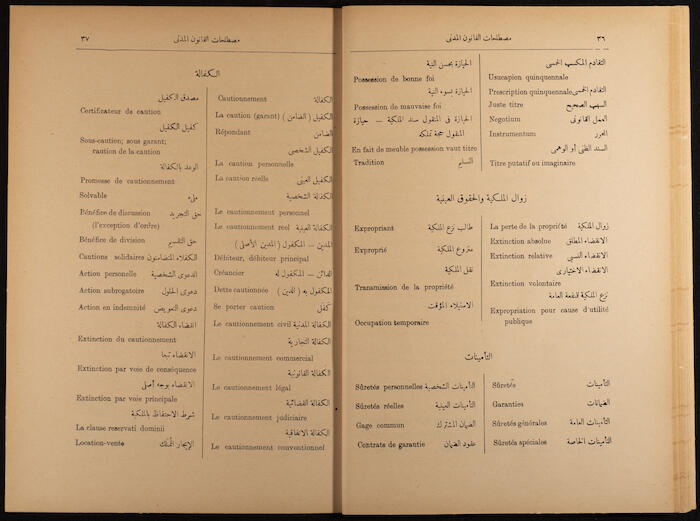 مصطلحات القانون المدنى ٣٦
التقادم المكسب الخمسى
Usucapion quinquennale
Prescription quinquennale التقادم الخمسى
Juste titre السبب الصحيح
Negotium العمل القانونى
Instrumentum المحرر
السند الظنى أو الوهمى
Titre putatif ou imaginaire
الحيازة بحسن النية
Possession de bonne foi
الحيازة بسوء النية
Possession de mauvaise foi
الحيازة فى المنقول سند الملكية — حيازة
المنقول حجة تملكه
En fait de meuble possession vaut titre
Tradition التسليم
زوال الملكية والحقوق العينية
La perte de la propriété زوال الملكية
Extinction absolue الانقضاء المطلق
Extinction relative الانقضاء النسبى
الانقضاء الاختيارى
Extinction volontaire
نزع الملكية للمنفعة العامة
Expropriation pour cause d'utilité
publique
Expropriant طالب نزع الملكية
Exproprié منزوع الملكية
نقل الملكية
Transmission de la propriété
الاستيلاء المؤقت
Occupation temporaire
التأمينات
Sûretés التأمينات
Garanties الضمانات
Sûretés générales التأمينات العامة
Sûretés spéciales التأمينات الخاصة
Sûretés personnelles التأمينات الشخصية
Sûretés réelles التأمينات العينية
Gage commun الضمان المشترك
Contrats de garantie عقود الضمان
مصطلحات القانون المدنى ٣٧
الكفالة
Cautionnement الكفالة
La caution (garant) الكفيل (الضامن)
Répondant الضامن
الكفيل الشخصى
La caution personnelle
La caution réelle الكفيل العينى
الكفالة الشخصية
Le cautionnement personnel
Le cautionnement réel الكفالة العينية
المدين — المكفول (المدين الأصلى)
Débiteur, débiteur principal
Créancier الدائن — المكفول له
Dette cautionnée المكفول به (الدين)
Se porter caution كفل
Le cautionnement civil الكفالة المدنية
الكفالة التجارية
Le cautionnement commercial
الكفالة القانونية
Le cautionnement légal
الكفالة القضائية
Le cautionnement judiciaire
الكفالة الاتفاقية
Le cautionnement conventionnel
مصدق الكفيل
Certificateur de caution
كفيل الكفيل
Sous-caution; sous garant;
caution de la caution
الوعد بالكفالة
Promesse de cautionnement
Solvable ملىء
Bénéfice de discussion حق التجريد
(l'exception d'ordre)
Bénéfice de division حق التقسيم
Cautions solidaires الكفلاء المتضامنون
Action personelle الدعوى الشخصية
Action subrogatoire دعوى الحلول
Action en indemnité دعوى التعويض
انقضاء الكفالة
Extinction du cautionnement
الانقضاء تبعا
Extinction par voie de conséquence
الانقضاء بوجه أصلى
Extinction par voie principale
شرط الاحتفاظ بالملكية
La clause reservati dominii
Location-vente الإيجار المملك